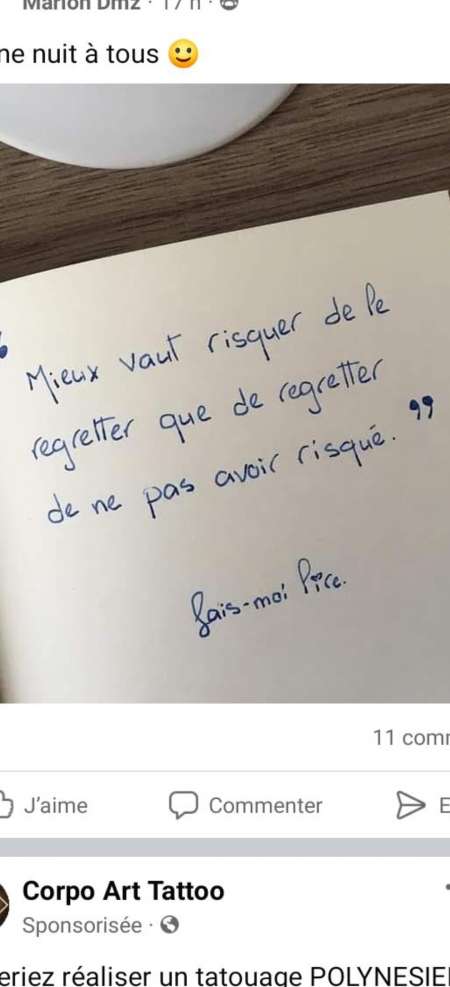 Marion Dmz · 17 h ·
ne nuit à tous 🙂
Mieux vaut risquer de le
regretter que de regretter
de ne pas avoir risqué. ”
fais-moi lire.
11 comm
J’aime
Commenter
E
Corpo Art Tattoo
Sponsorisée ·
eriez réaliser un tatouage POLYNESIE